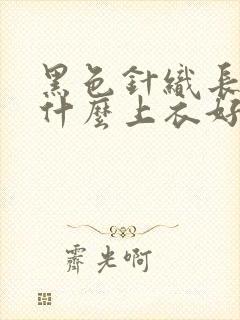 黑色針織長
什麼上衣好
霽光啊